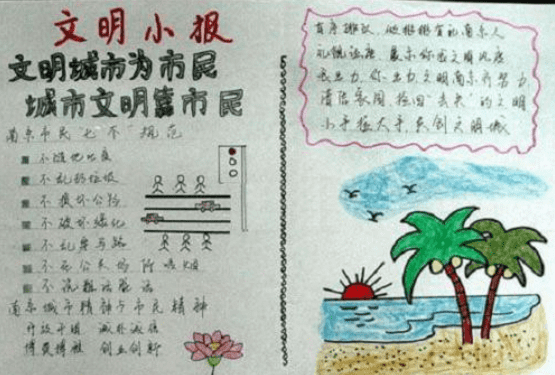 文明小报
文明城市为市民
城市文明靠市民
南京市民"七不"规范
不随地吐痰
不乱扔垃圾
不损坏公物
不破坏绿化
不乱穿马路
不在公共场所吸烟
不说粗话脏话
南京城市精神与市民精神
开放开明 诚朴诚信
博爱博雅 创业创新
有序排队，做彬彬有礼南京人
礼貌让座 展示你我文明风度
我出力，你出力，文明南京齐努力
清洁家园，捡回"丢失"的文明
小手拉大手 共创文明城